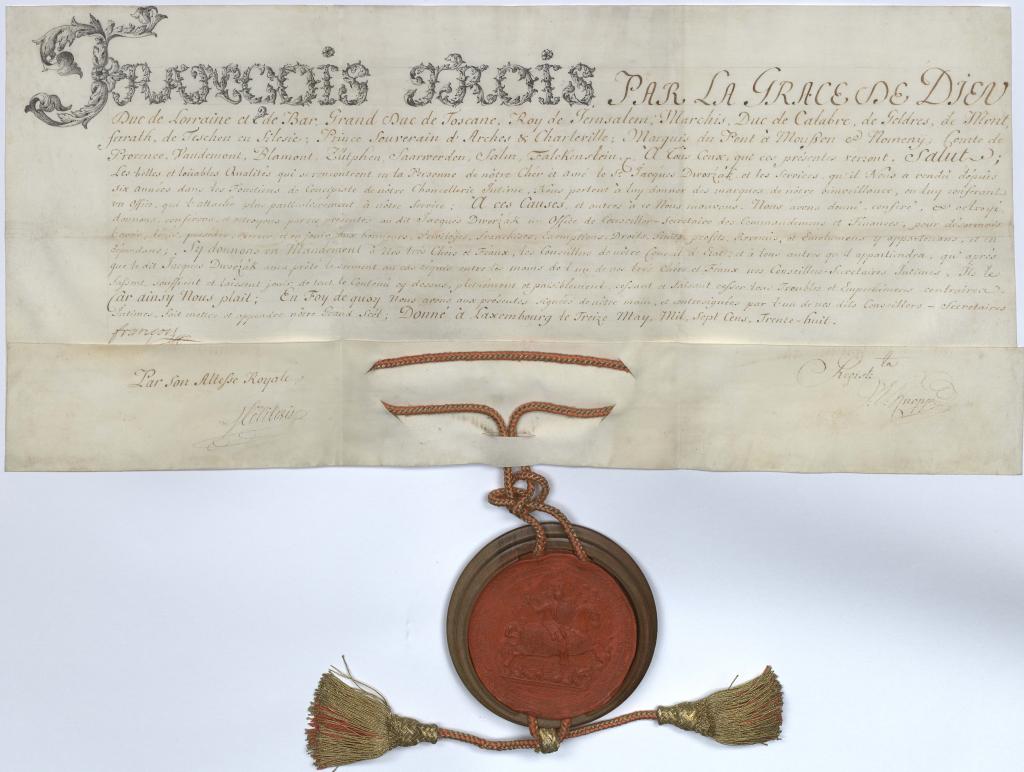 François Trois PAR LA GRACE DE DIEU
Duc de Lorraine et de Bar, Grand Duc de Toscane, Roy de Jerusalem, Marchis, Duc de Calabre, de Geldres, de Mont
ferrath, de Teschen en Silesie; Prince Souverain d'Arches & Charleville; Marquis du Pont à Moußon & Nomeny, Comte de
Provence, Vaudemont, Blamont, Zütphen, Saarwerden, Salm, Falckenstein, & A Tous Ceux, qui ces présentes verront, Salut;
Les belles et loüables Qualités qui se rencontrent en la Personne de nôtre Cher et Amé le Sr. Jacques Dworzak et les Services, qu'il Nous a rendu depuis
six années dans les Fonctions de Concipiste de nôtre Chancellerie Intime, Nous portent à luy donner des marques de nôtre bienveillance, en luy conférant
un Office, qui l'attache plus particulierement à nôtre Service; A ces Causes, et autres à ce Nous mouvans, Nous avons donné, conferé, & octroyé
donnons, conferons, et octroyons par ces présentes au dit Jacques Dworzak un Office de Conseiller-Secretaire des Commandemens et Finances, pour désormais
l'avoir, tenir, posseder, exercer, et en jouir aux honneurs, Privileges, Franchises, Exemptions, Droits, Fruits, profits, Revenus, et Emolumens y appartenans, et en
dépendans; Sy donnons en Mandement à Nos trés Chers et Feaux, les Conseillers de nôtre Conseil d'Etat, et à tous autres qu'il appartiendra, qu'après
que le dit Jacques Dworzak aura prêté le serment au cas requis entre les mains de l'un de nos trés Chers et Feaux nos Conseillers-Secretaires Intimes, Ils le
fassent, souffrent et laissent jouir de tout le Contenu cy dessus, pleinement et paisiblement, cessant et faisant cesser tous Troubles et Empechemens contraires
Car ainsy Nous plait; En Foy de quoy Nous avons aux présentes signées de nôtre main, et contresignées par l'un de nos dits Conseillers-Secretaires
Intimes, fait mettre et appendre nôtre Grand Scel; Donné à Laxembourg le Treize May, Mil, Sept Cens, Trente-huit.
françois
Par Son Altesse Royale
Registrta